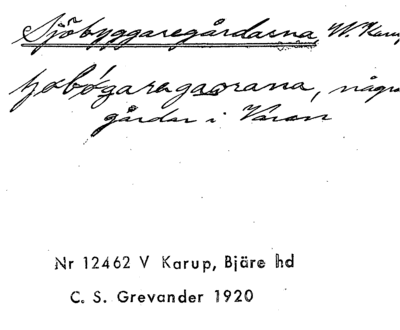 Sjöbyggaregårdarna, W. Karu
några
gårdar i Varan
Nr 12462 V Karup, Bjäre hd
C. S. Grevander 1920